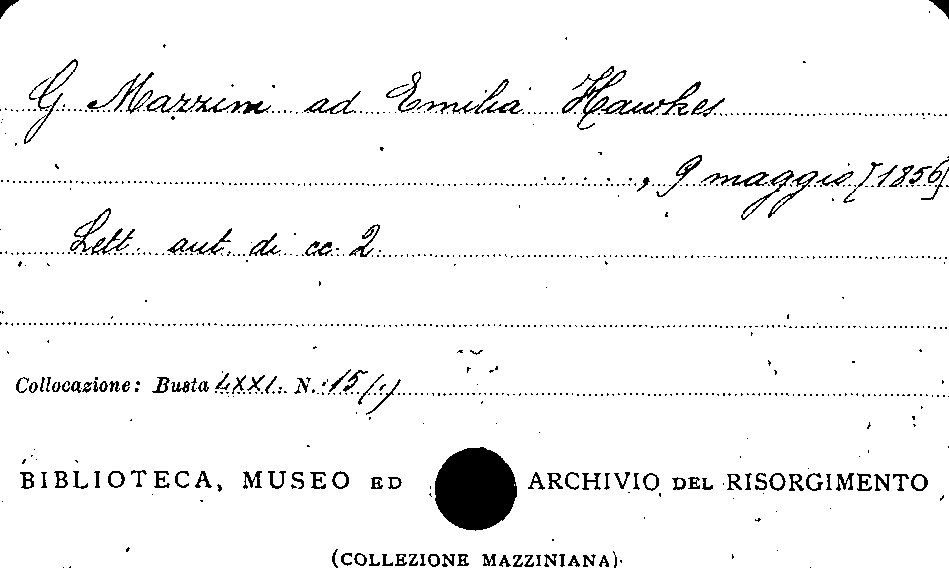 G. Mazzini ad Emilia Hawkes
....., 9 maggio [1856]
Lett. aut. di cc. 2.
Collocazione: Busta LXXI. N. 15/(1)
BIBLIOTECA, MUSEO ED ARCHIVIO DEL RISORGIMENTO
(COLLEZIONE MAZZINIANA)